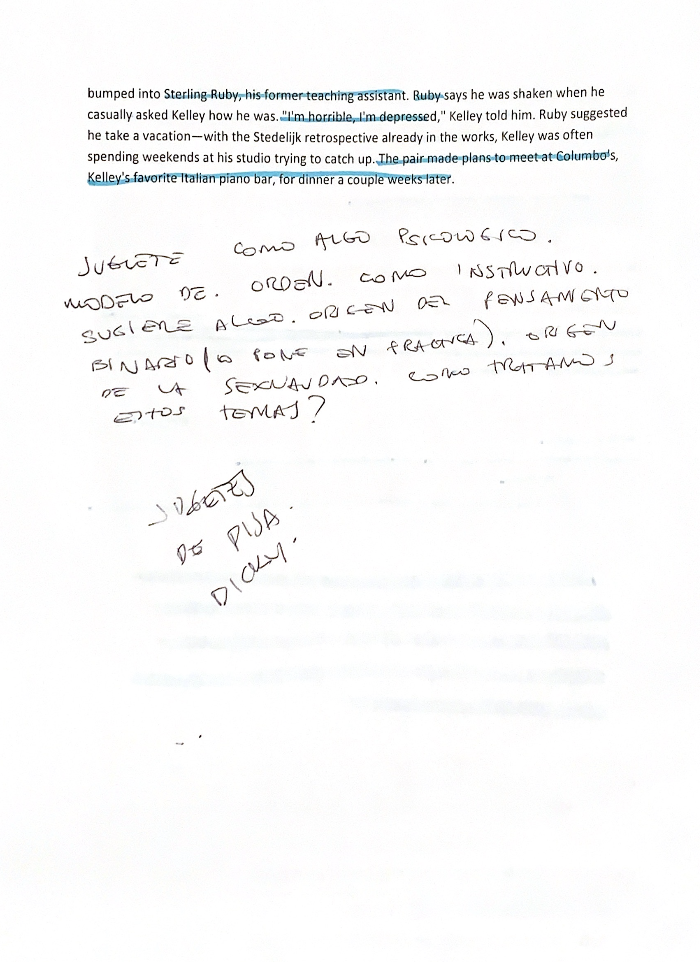 bumped into Sterling Ruby, his former teaching assistant. Ruby says he was shaken when he
casually asked Kelley how he was. "I'm horrible, I'm depressed," Kelley told him. Ruby suggested
he take a vacation—with the Stedelijk retrospective already in the works, Kelley was often
spending weekends at his studio trying to catch up. The pair made plans to meet at Columbo's,
Kelley's favorite Italian piano bar, for dinner a couple weeks later.
JUGUETE COMO ALGO PSICOLOGICO.
MODELO DE. ORDEN. COMO INSTRUCTIVO.
SUGIERE ALGO. ORIGEN DEL PENSAMIENTO
BINARIO (O PONE EN PRACTICA). ORIGEN
DE LA SEXUALIDAD. COMO TRATAMOS
ESTOS TEMAS?
JUGUETES
DE PIJA.